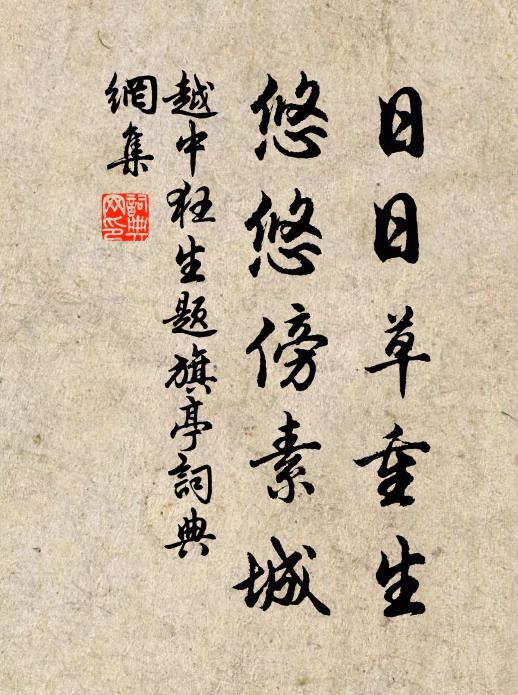 日日草重生
悠悠傍素城
越中狂生題旗亭詞典
網集
詞典
网印